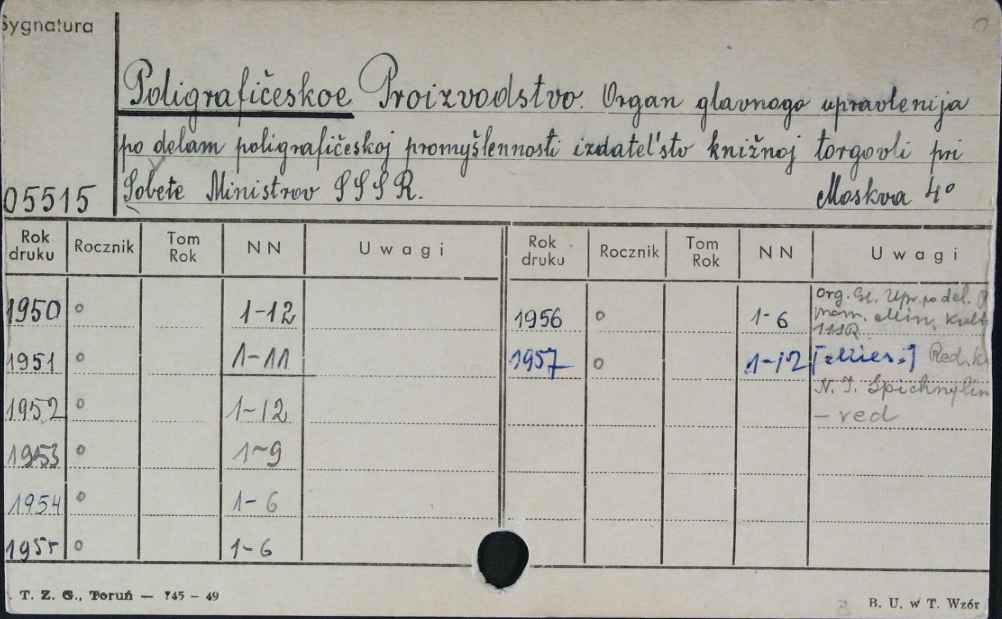 Sygnatura
Poligrafičeskoe Proizvodstvo. Organ glavnogo upravlenija
po delam poligrafičeskoj promyšlennosti izdatel'stv knižnoj torgovli pri
05515 Sovete Ministrov SSSR. Moskva 4°
Rok druku Rocznik Tom Rok NN Uwagi Rok druku Rocznik Tom Rok NN Uwagi
1950 o 1-12 1956 o 1-6 Org. Gl. Upr. po del.
prom. Min. Kult.
SSSR.
1951 o 1-11 1957 o 1-12 [Mies.] Red.
1952 o 1-12 N. I. Spichnylin
- red
1953 o 1-9
1954 o 1-6
1955 o 1-6
T. Z. G., Toruń — 745 - 49 B. U. w T. Wzór